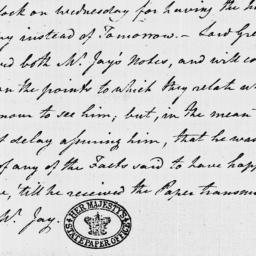 lock on Wednesday for having the h
ny instead of Tomorrow. – Lord Gre
ed both Mr. Jay's Notes, and will co
on the points to which they relate w
nour to see him; but, in the mean
t delay assuring him, that he was
of any of the Facts said to have happ
e, 'till he received the Paper transm
Mr. Jay.
HER MAJESTY'S
STATE PAPER OFFICE